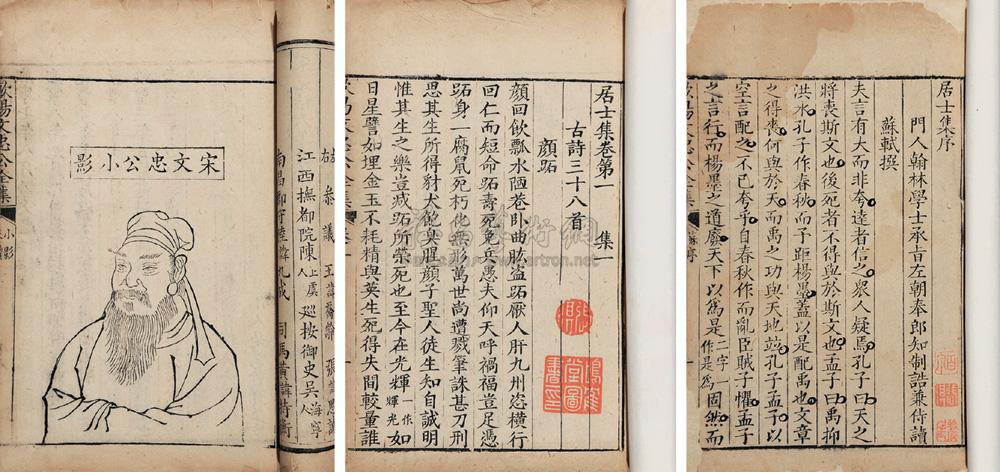 宋文忠公小影
江西撫都院陳上虞人巡按御史吳海寧人
小影
居士集卷第一 集一
古詩三十八首
顔跖
顔回飲瓢水陋巷卧曲肱盜跖厭人肝九州恣橫行
回仁而短命跖壽死免兵愚夫仰天呼禍福豈足憑
跖身一腐鼠死朽化無形萬世尚遭戮筆誅甚刀刑
思其生所得豺犬飽臭腥顔子聖人徒生知自誠明
惟其生之樂豈減跖所榮死也至今在光輝一作輝光如
日星譬如埋金玉不耗精與英生死得失間較量誰
居士集序
門人翰林學士承旨左朝奉郎知制誥兼侍讀
蘇軾撰
夫言有大而非夸達者信之衆人疑焉孔子曰天之
將喪斯文也後死者不得與於斯文也孟子曰禹抑
洪水孔子作春秋而予距楊墨蓋以是配禹也文章
之得喪何與於天而禹之功與天地並孔子孟子以
空言配之不已夸乎自春秋作而亂臣賊子懼孟子
之言行而楊墨之道廢天下以爲是二字一作是爲固然而